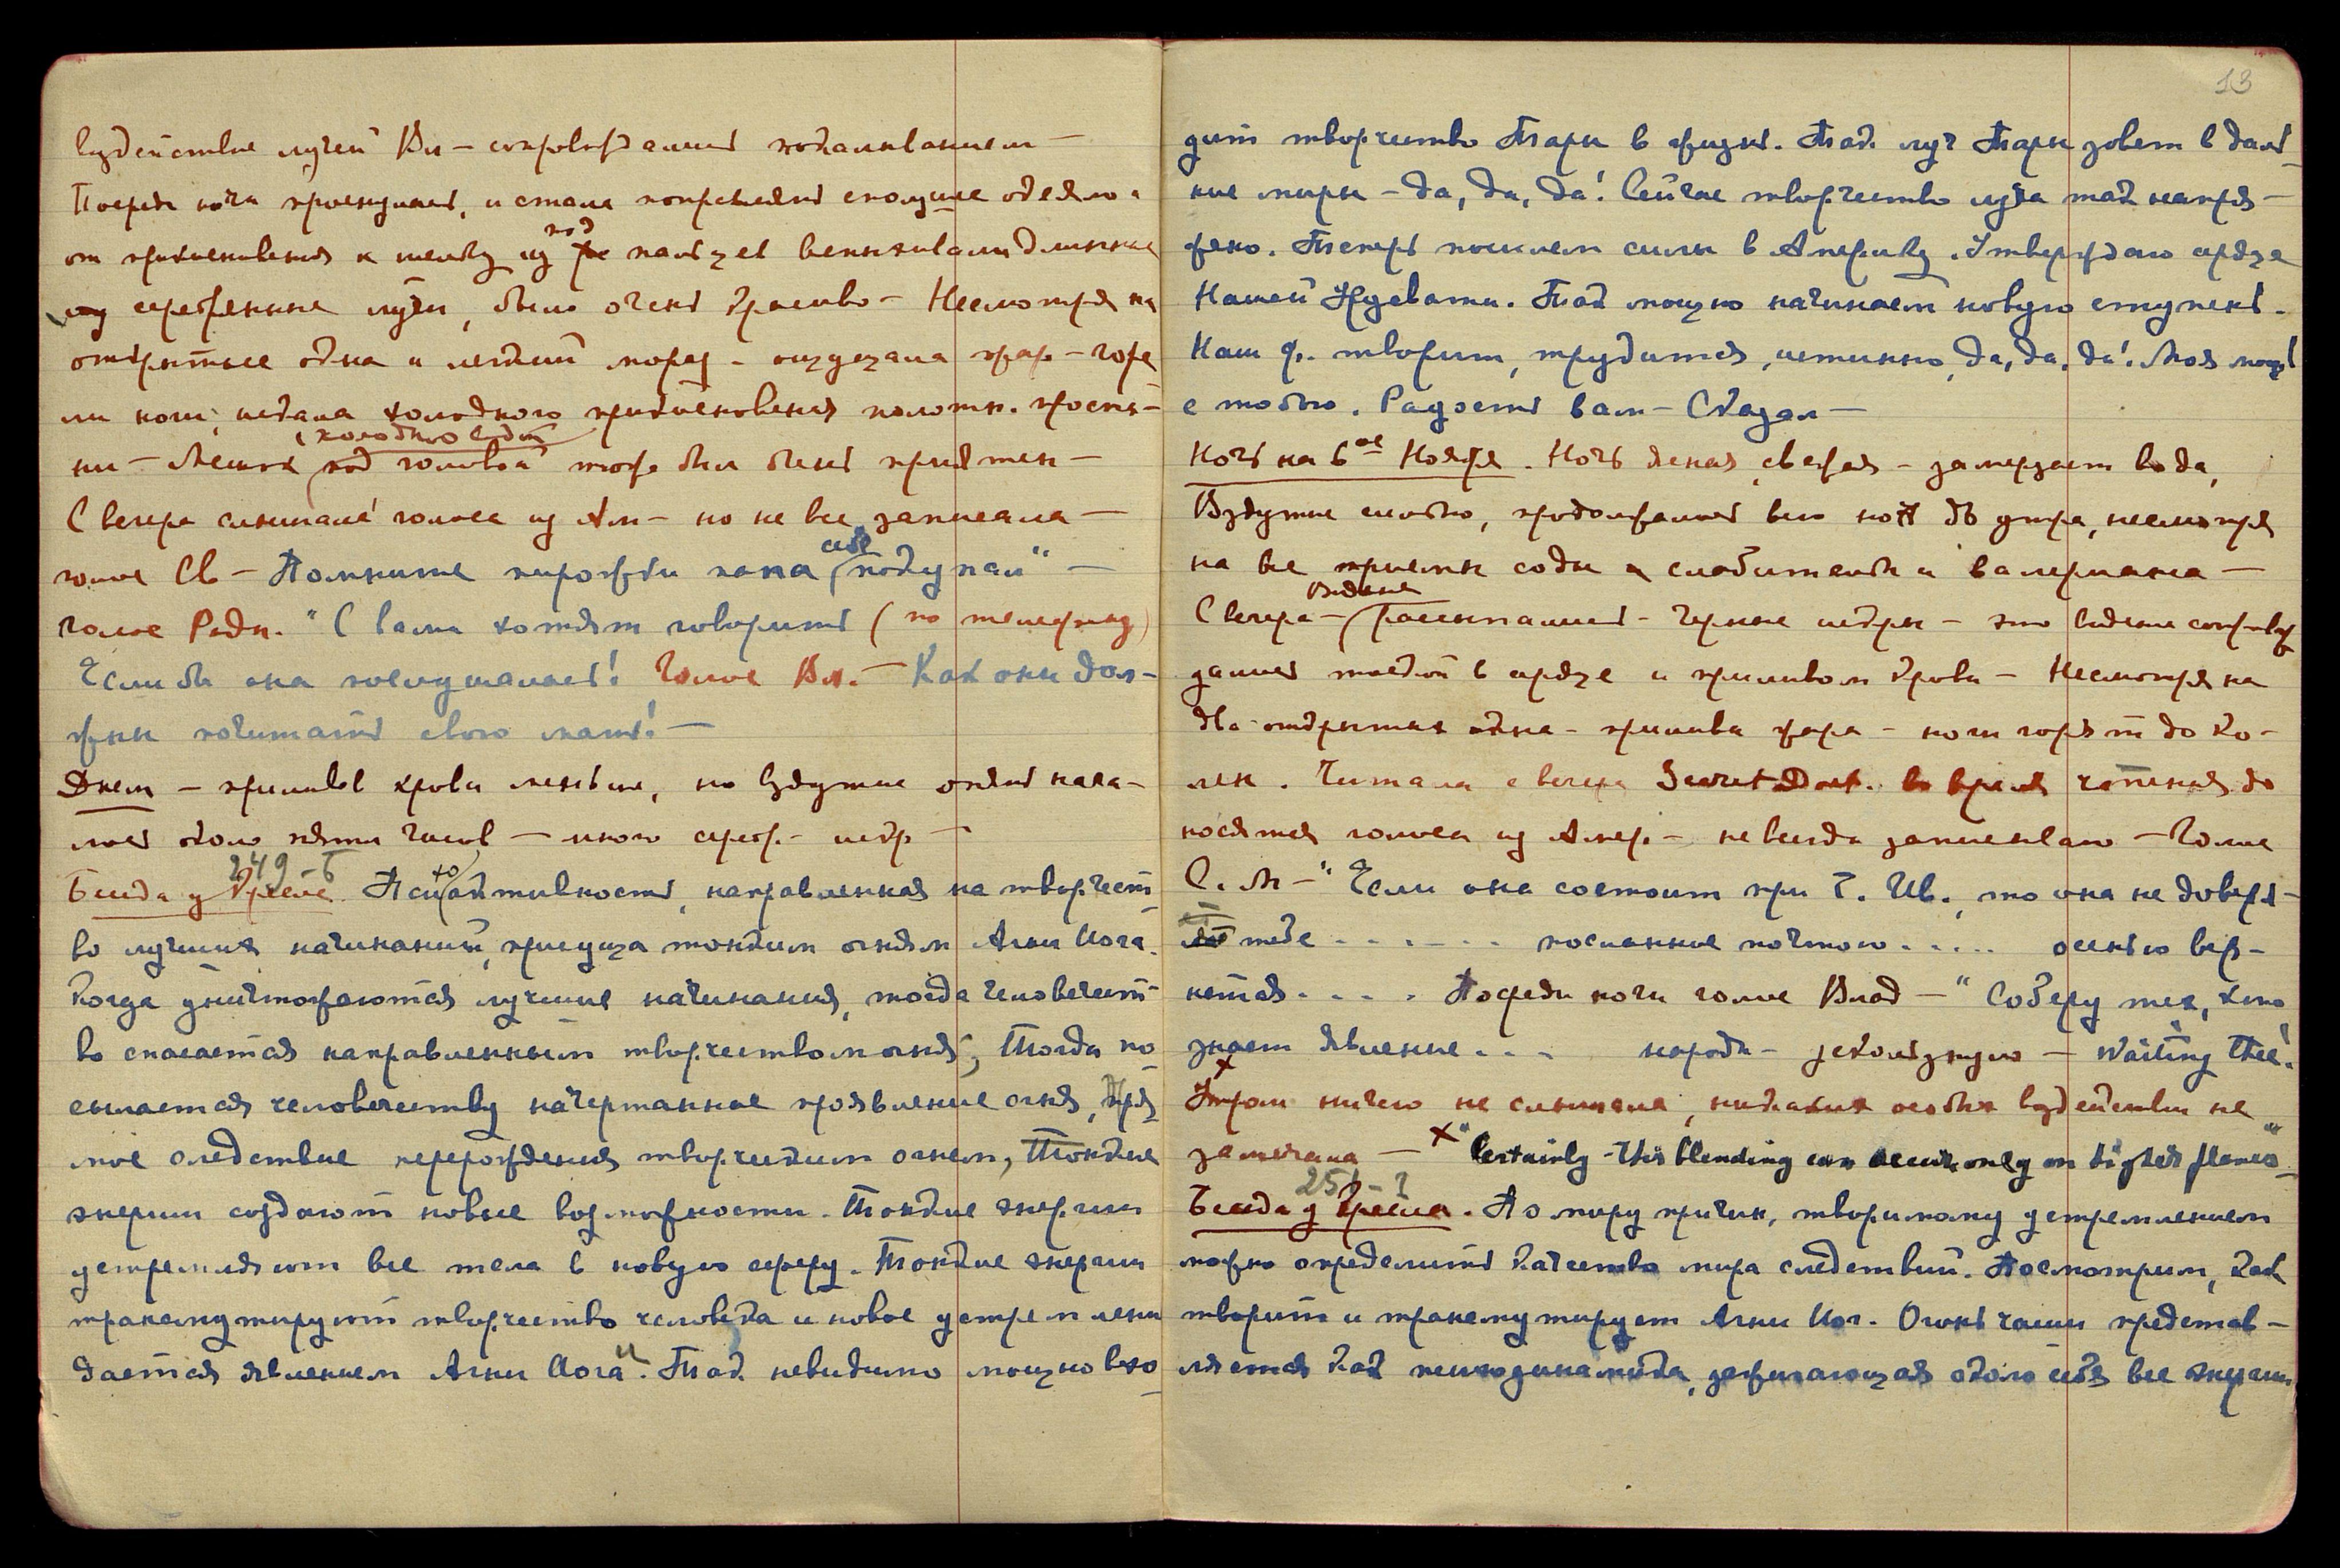 воздействие лучей Вл — сопровождались покалыванием —
Посреди ночи проснулась, и стала поправлять сползшее одеяло и
от прикосновения к шелку из под пальцев вспыхивали длинные
серебряные лучи, было очень красиво — Несмотря на
открытые окна и легкий мороз — ощущала жар — горе
ли ноги, искала холодного прикосновения полотн. просты-
ни — Мешок с холодною водой под головой тоже был очень приятен —
С вечера слышала голоса из Ам — но не все записала —
голос Св — Помните пирожки папа себе покупай" —
голос Радн. "С вами хотят говорить (по телефону)
Если бы она послушалась! Голос Вл. — Как они дол-
жны почитать свою мать! —
Днем — приливов крови меньше, но вздутие опять нача-
лось около пяти часов — много сереб. — искр —
249-б
Беседа у Кресла. Психоактивность, направленная на творчест-
во лучших начинаний, присуща тонким огням Агни Йога.
Когда уничтожаются лучшие начинания, тогда человечест-
во спасается направленным творчеством огня; Тогда по
сылается человечеству начертанное проявление огня, пря
мое следствие перерождения творческим огнем, Тонкие
энергии создают новые возможности. Тонкие энергии
устремляют все тела в новую сферу. Тонкие энергии
трансмутируют творчество человека и новое устремлени
дается явлением Агни Йога". Так невидимо мощно вхо-
13
дит творчество Тары в жизнь. Так луч Тары зовет в даль-
ние миры — да, да, да! Сейчас творчество луча так напря-
жено. Теперь пошлем силы в Америку. Утверждаю сердце
Нашей Урувати. Так мощно начинаем новую ступень.
Наш ф. творит, трудится, истинно, да, да, да! Моя мощь
с тобою. Радость вам — Сказал —
Ночь на 6ое Ноября. Ночь ясная, свежая — замерзает вода,
Вздутие сильно, продолжалось всю ночь до утра, несмотря
на все приемы соды и слабительн и валериана —
С вечера — Видение рассыпались — черные искры — это видение сопровож
далось тоской в сердце и приливом крови — Несмотря на
два открытых окна — приливы жара — ноги горят до ко-
лен. Читала с вечера Secret Doct. во время чтения до
носятся голоса из Амер. — не всегда записываю — Голос
С. М — "Если она состоит при Г. Ив., то она не доверя-
ет тебе . . . . . . посланное почтою . . . . . осенью вер-
нется . . . . Посреди ночи голос Влад — "Соберу тех, кто
знает явление . . . народа — ускользнуло — Waiting thee!
Утром ничего не слышала, никаких особых воздействий не
замечала — × "Certainly - this blending can occur only on higher planes"
251-2
Беседа у Кресла. По миру причин, творимому устремлением
можно определить качество мира следствий. Посмотрим, как
творит и трансмутирует Агни Йог. Огонь чаши представ-
ляется как психодинамика, зажигающая около себя все энергии